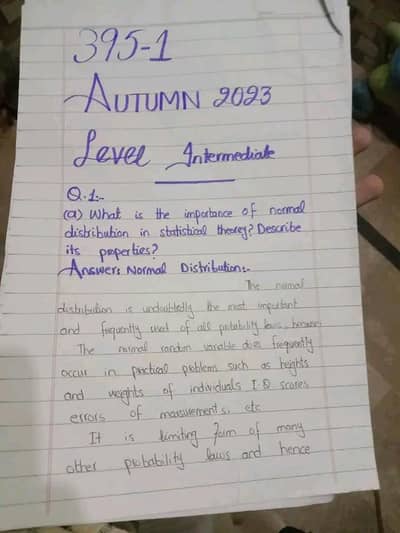 395-1
AUTUMN 2023
Level Intermediate
Q.1:-
(a) What is the importance of normal
distribution in statistical theory? Describe
its properties?
Answer: Normal Distribution:-
The normal
distribution is undoubtedly the most important
and frequently used of all probability laws, because
The normal random variable does frequently
occur in practical problems such as heights
and weights of individuals I.Q scores
errors of measurements, etc
It is limiting form of many
other probability laws and hence